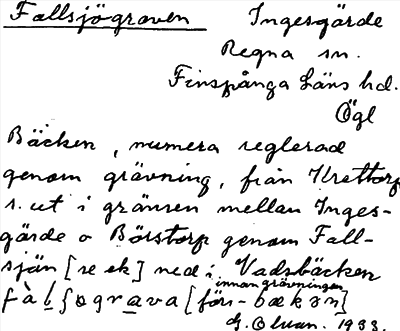 Fallsjögraven Ingesgärde
Regna sn.
Finspånga Läns hd.
Ögl
Bäcken, numera reglerad
genom grävning, från Krettorp
r. ut i gränsen mellan Inges-
gärde o Börstorp genom Fall-
sjön [se ek] ned i Vadsbäcken
innan grävningen
[förr- bækən]
G. Olsson. 1933.